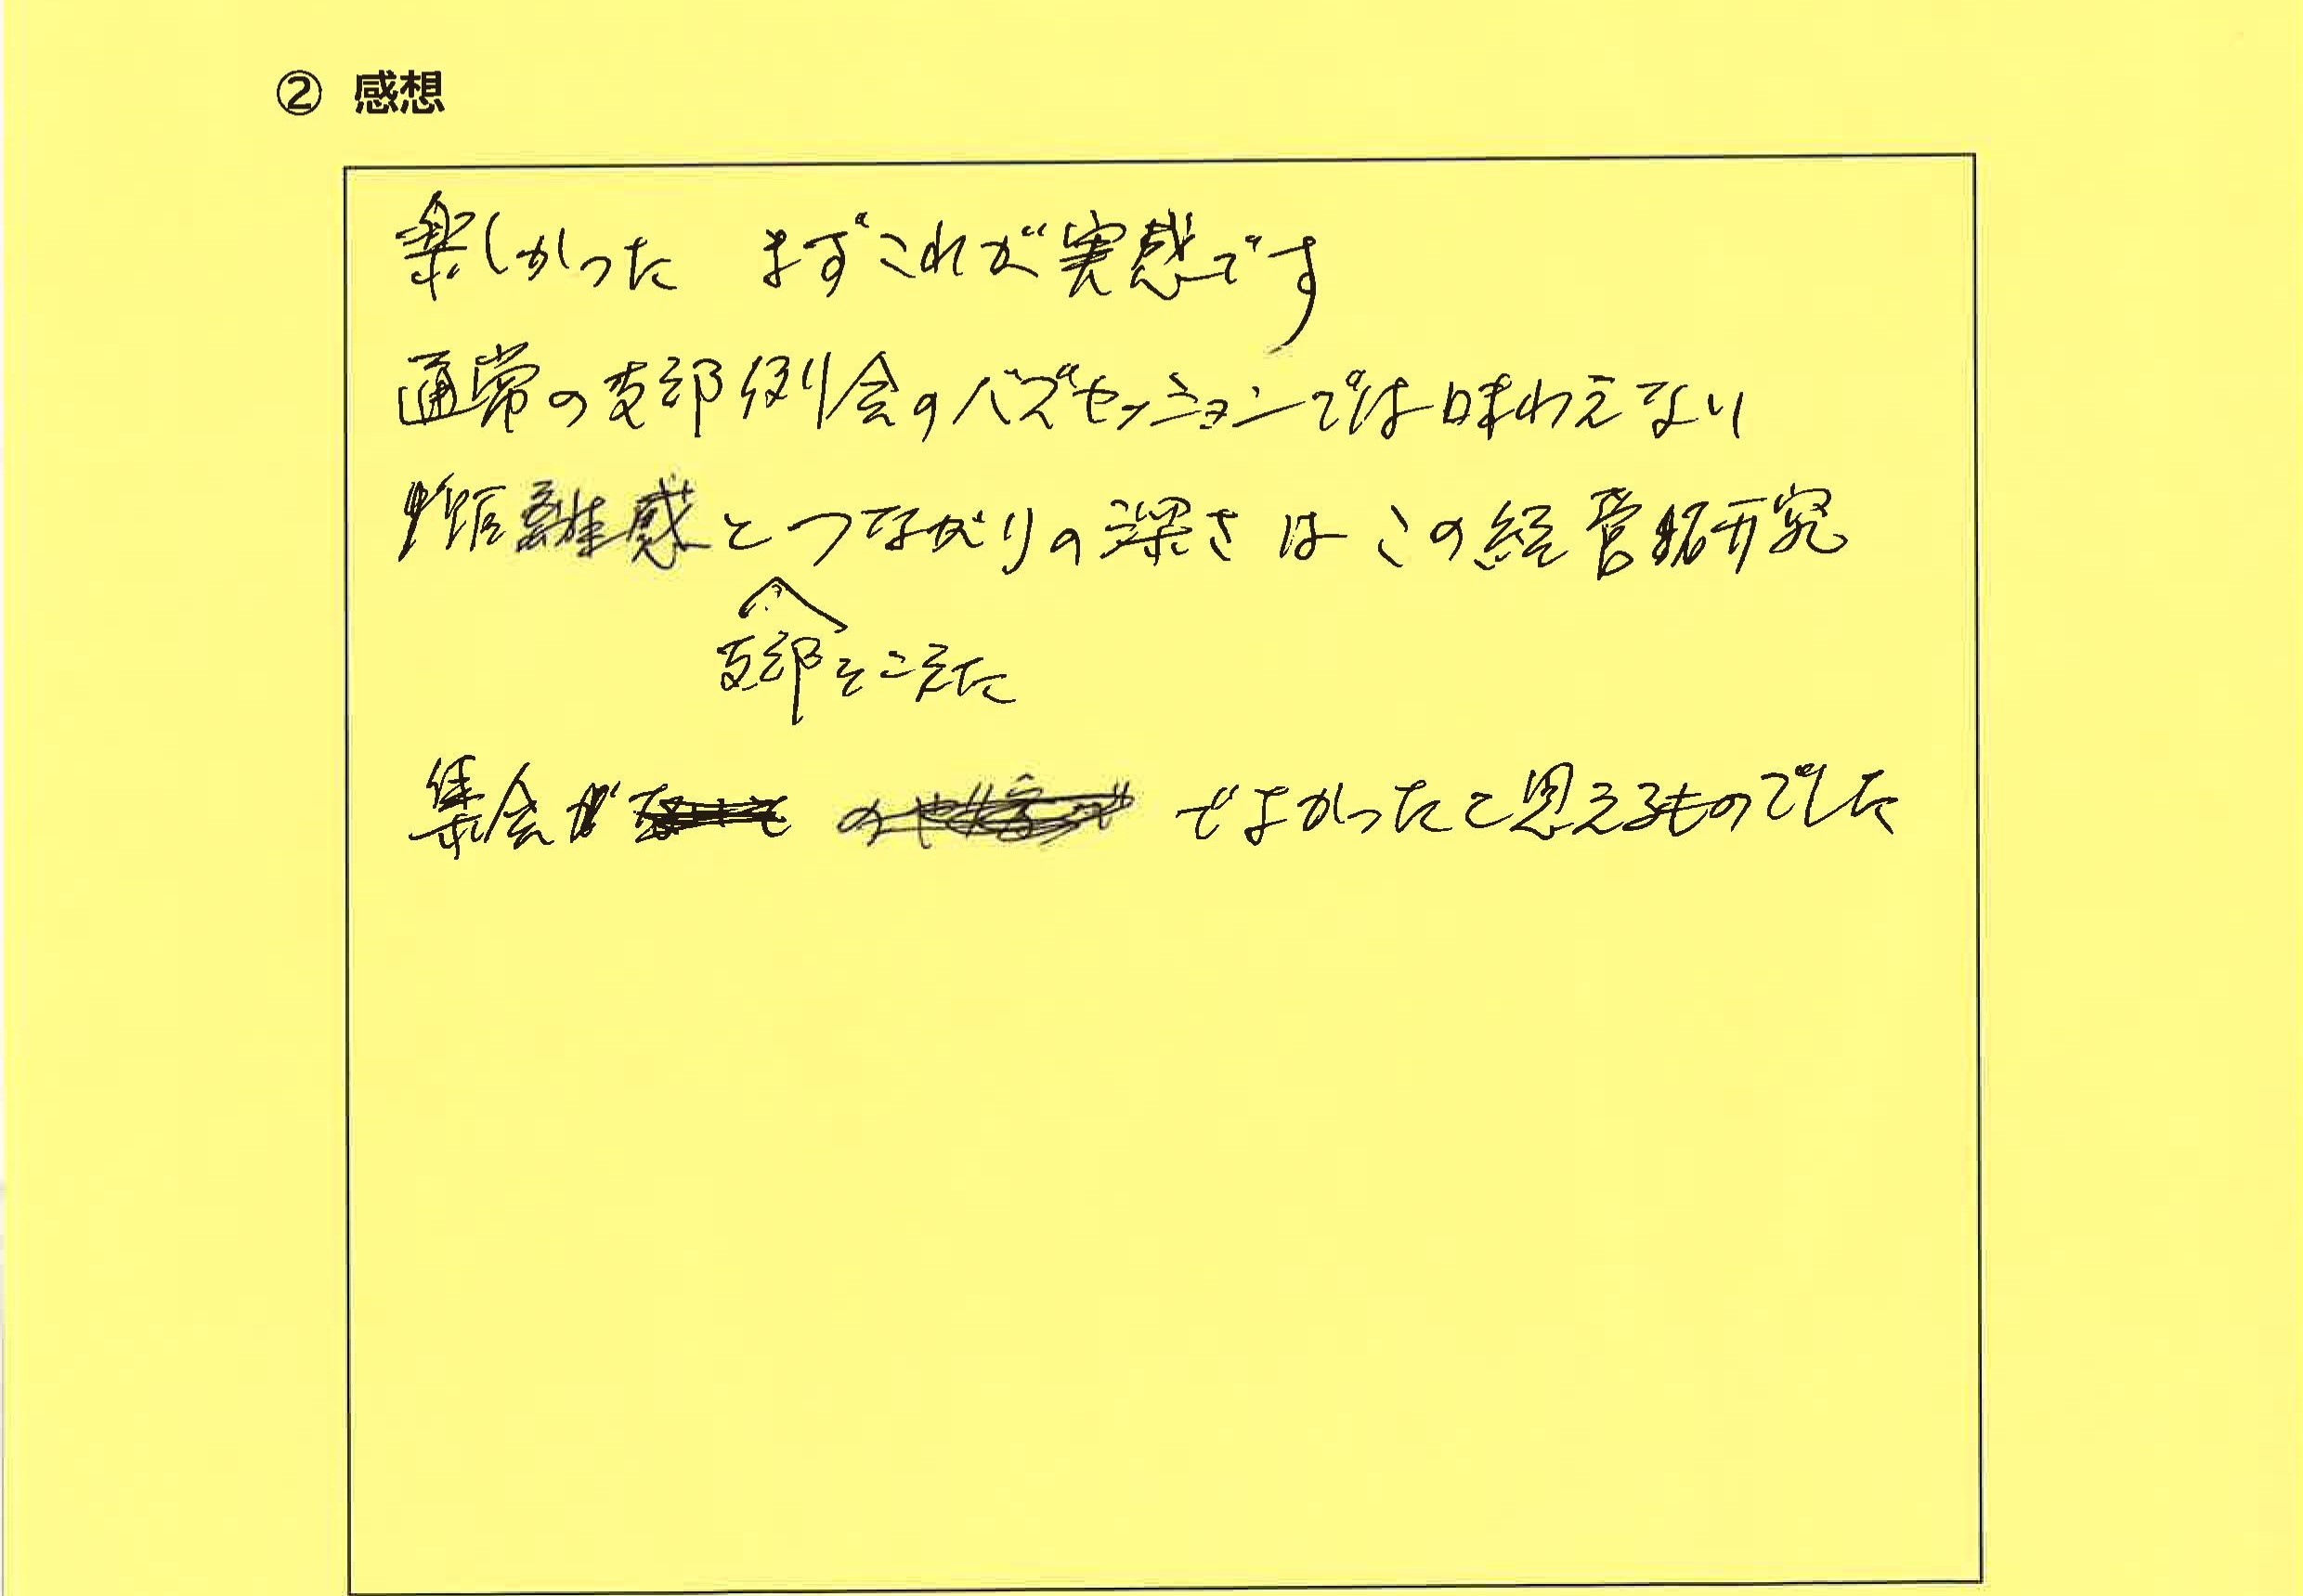 ② 感想
楽しかった まずこれが実感です
通常の支部例会のバズセッションでは味わえない
距離感とつながりの深さはこの経営研究
支部をこえた
集会が でよかったと思えるものでした